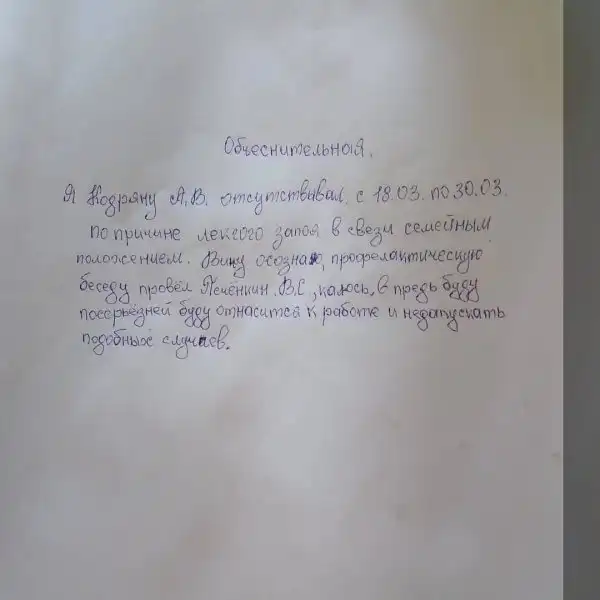 Обьеснительноя.
Я Кодряну А.В. отсутствывал, с 18.03. по 30.03.
по причине лексого запоя в свези семетным
положением. Вину осознаю, профелактическую
беседу провёл Ясчёнкин .В.С, каюсь, в предь буду
посерьёзней буду отнасится к работе и недапускать
подобных случаев.